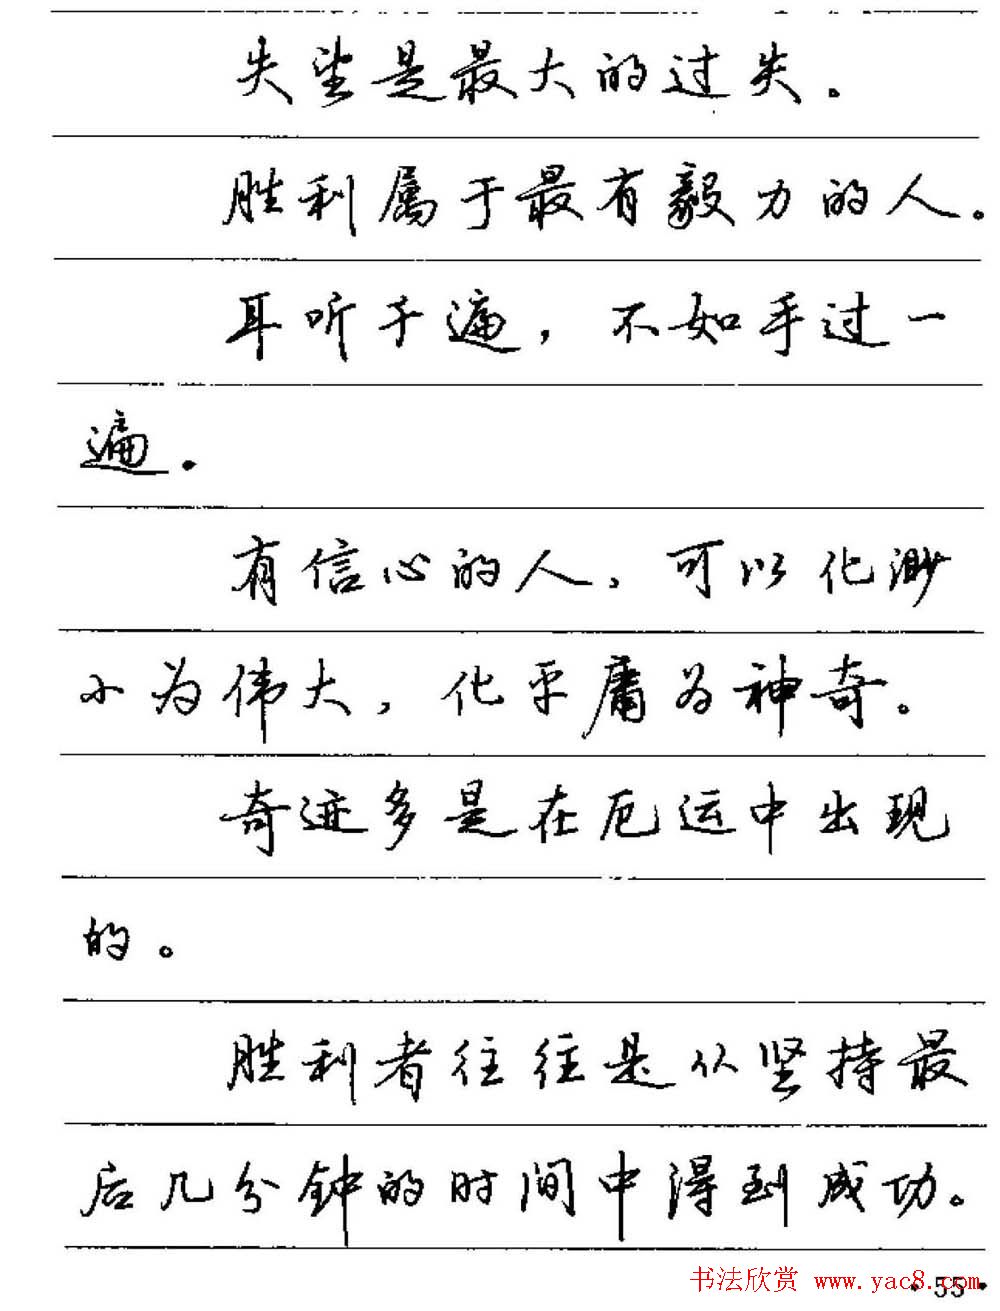 失望是最大的过失。
胜利属于最有毅力的人。
耳听千遍，不如手过一
遍。
有信心的人，可以化渺
小为伟大，化平庸为神奇。
奇迹多是在厄运中出现
的。
胜利者往往是从坚持最
后几分钟的时间中得到成功。
书法欣赏 www.yac8.com
·55·